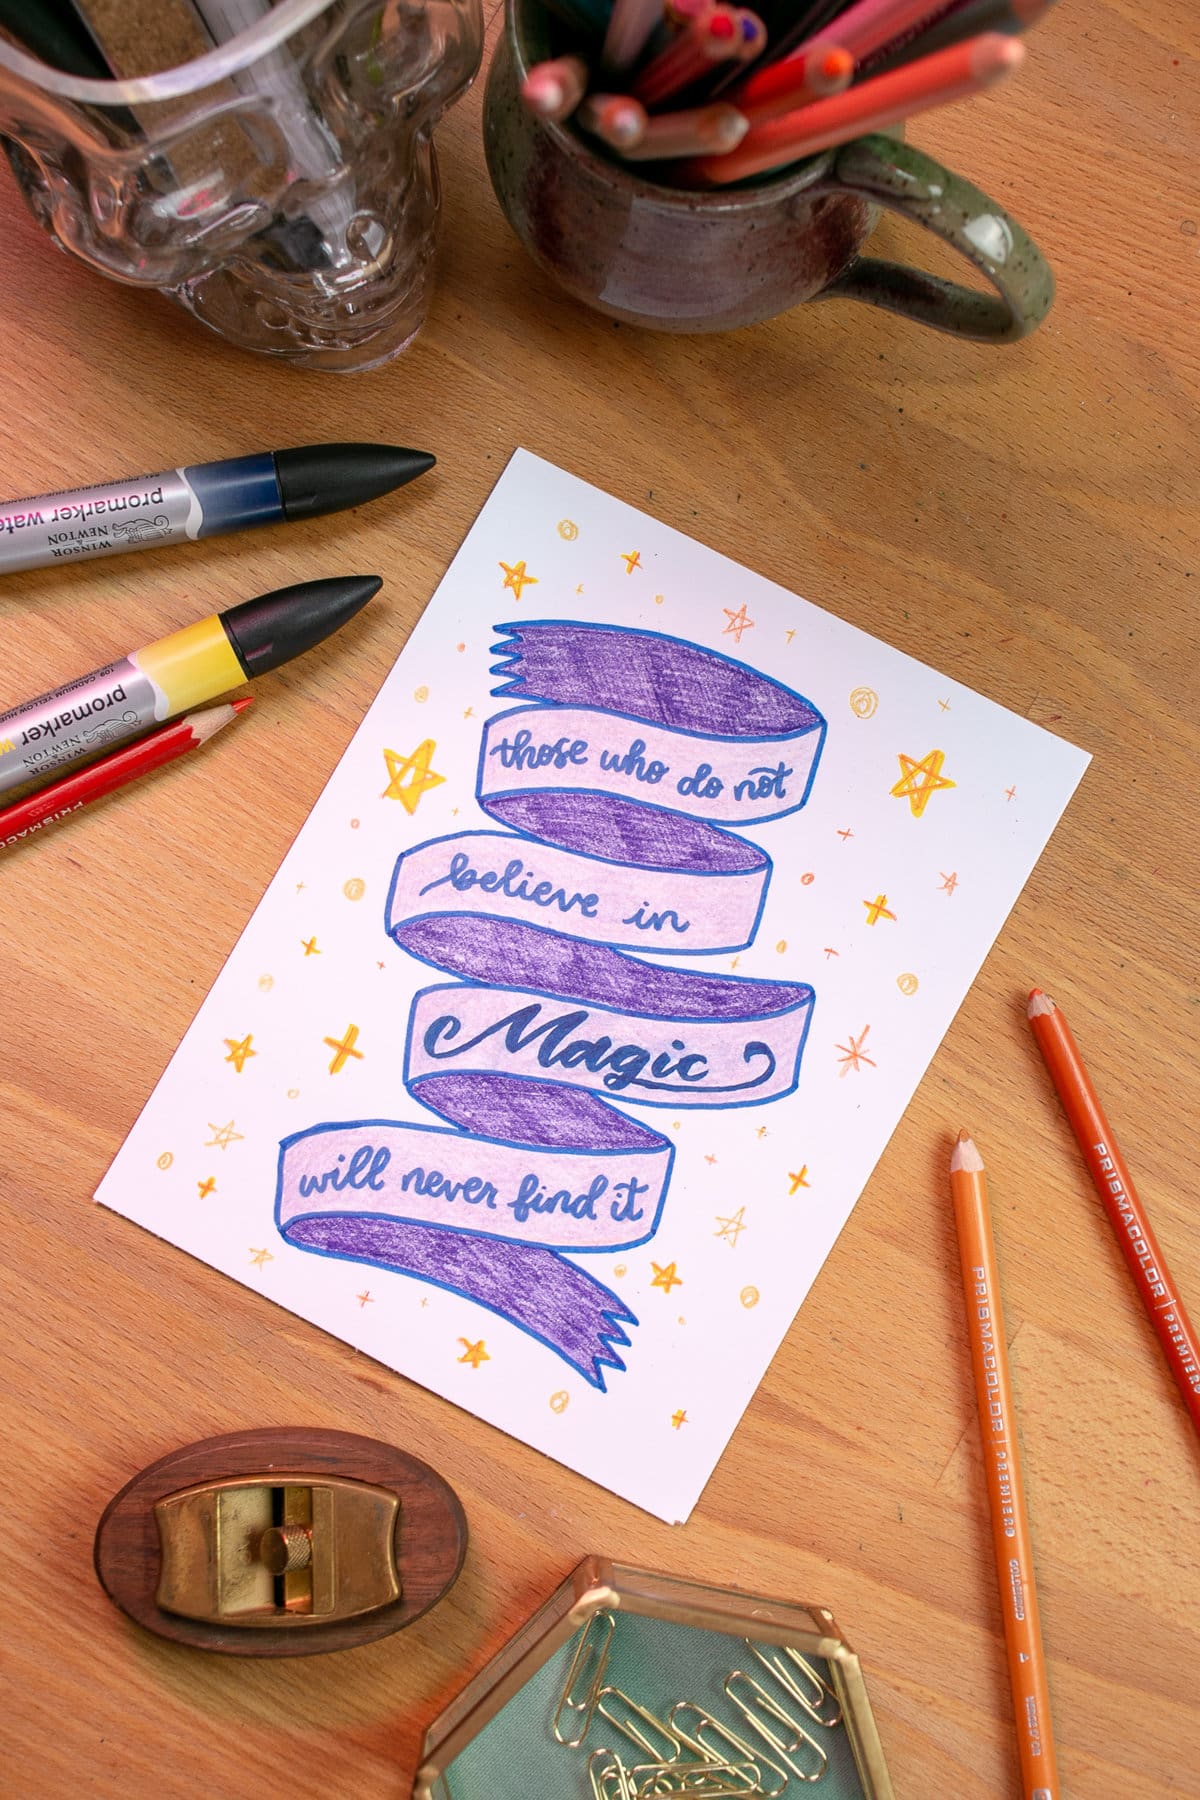 those who do not
believe in
Magic
will never find it
promarker wate
WINSOR
& NEWTON
promarker w
WINSOR
& NEWTON
PRISMACOLOR
PRISMACOLOR | PREMIER
PRISMACOLOR | PREMIER
GOLDENROD